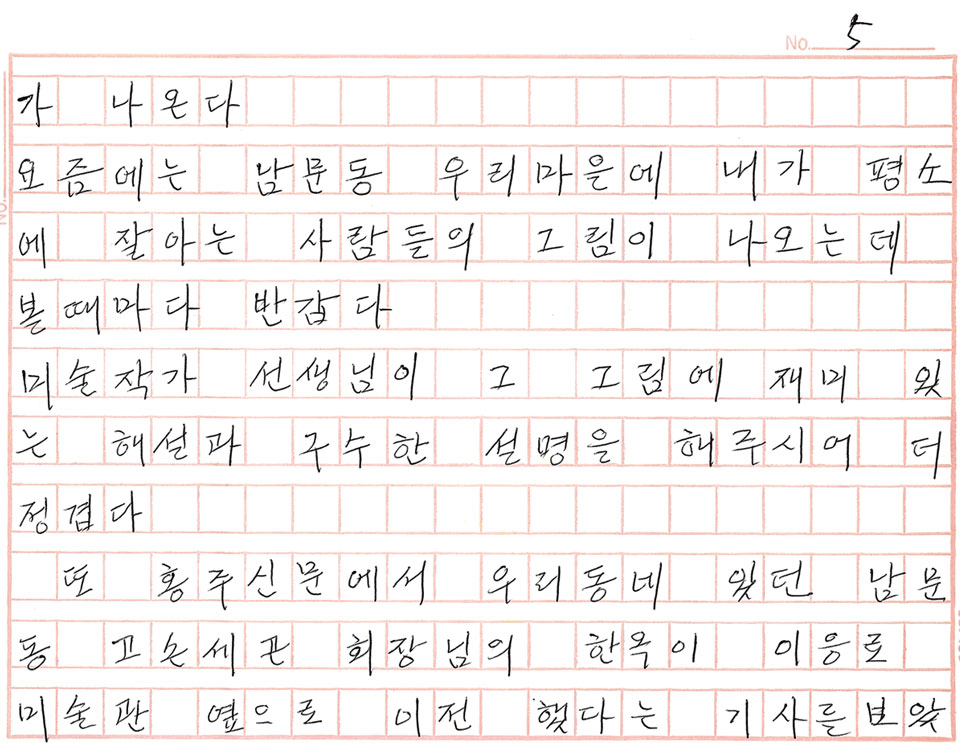 No. 5
가 나온다
요즘에는 남문동 우리마을에 내가 평소
에 잘아는 사람들의 그림이 나오는데
볼때마다 반갑다
미술작가 선생님이 그 그림에 재미 있
는 해설과 구수한 설명을 해주시어 더
정겹다
또 홍주신문에서 우리동네 있던 남문
동 고손세곤 회장님의 한옥이 이응로
미술관 옆으로 이전 했다는 기사를보았
No.